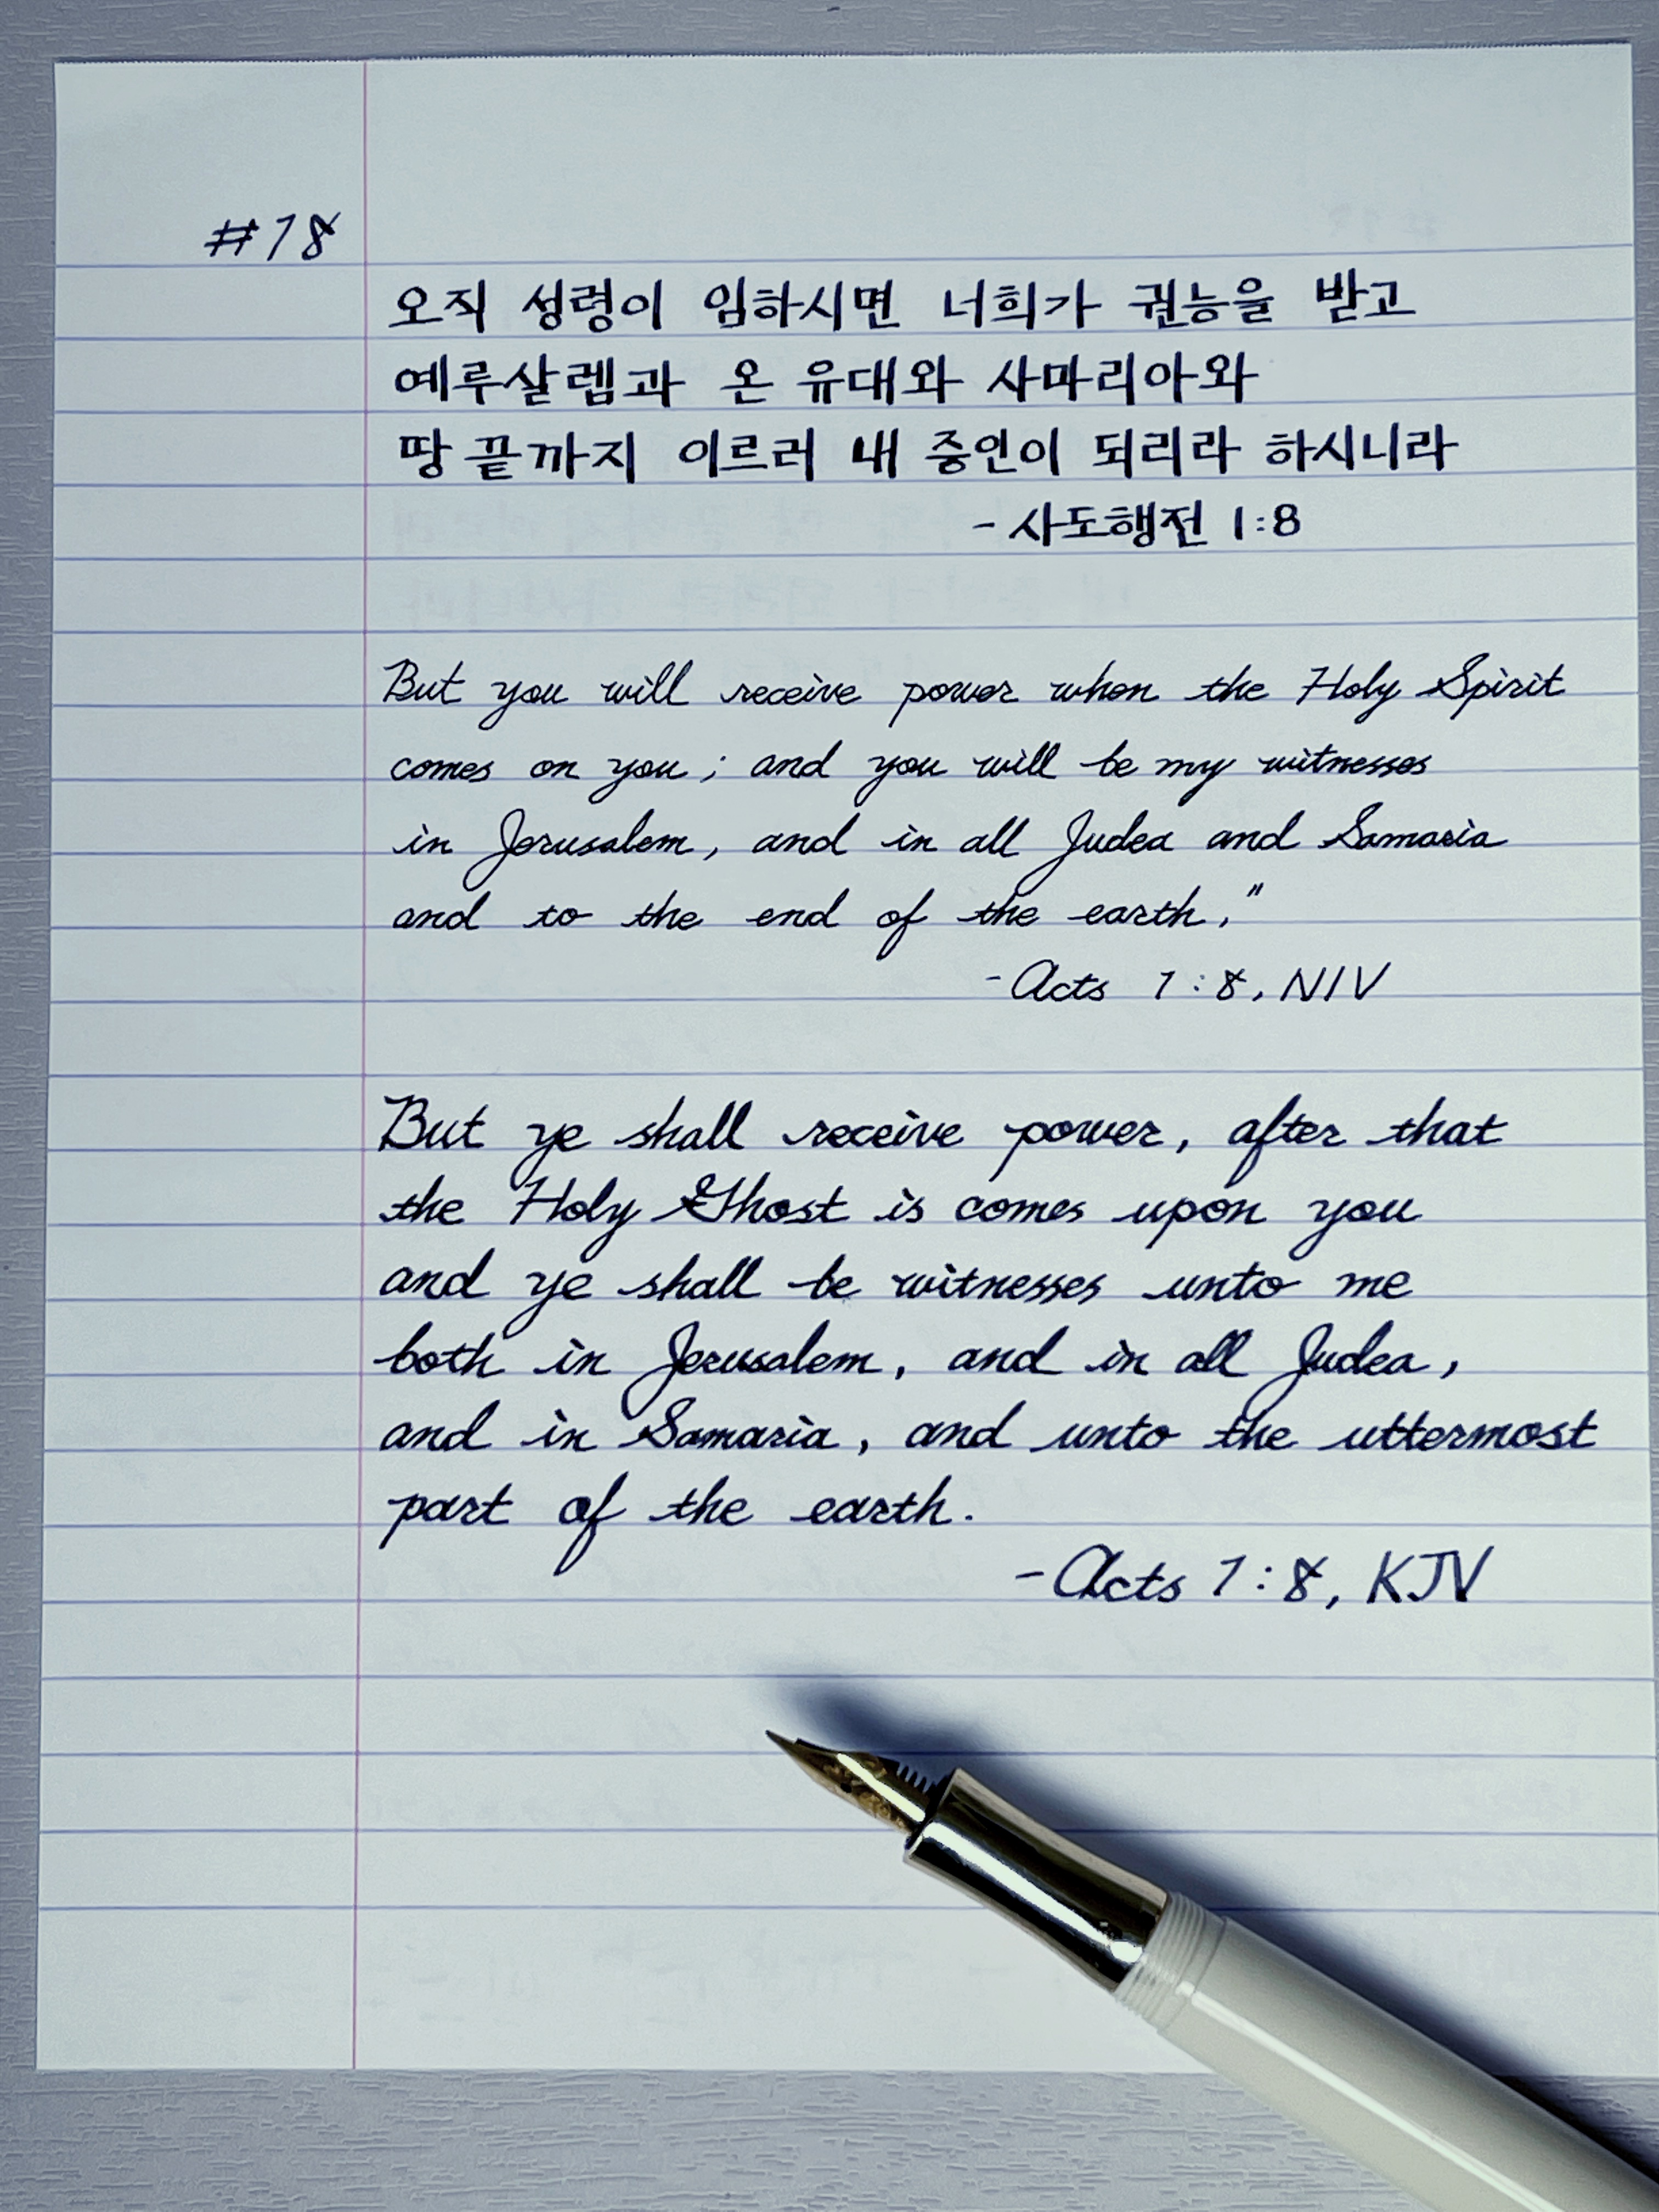 #18
오직 성령이 임하시면 너희가 권능을 받고
예루살렘과 온 유대와 사마리아와
땅 끝까지 이르러 내 증인이 되리라 하시니라
- 사도행전 1:8
But you will receive power when the Holy Spirit
comes on you; and you will be my witnesses
in Jerusalem, and in all Judea and Samaria
and to the end of the earth."
- Acts 1:8, NIV
But ye shall receive power, after that
the Holy Ghost is comes upon you
and ye shall be witnesses unto me
both in Jerusalem, and in all Judea,
and in Samaria, and unto the uttermost
part of the earth.
- Acts 1:8, KJV